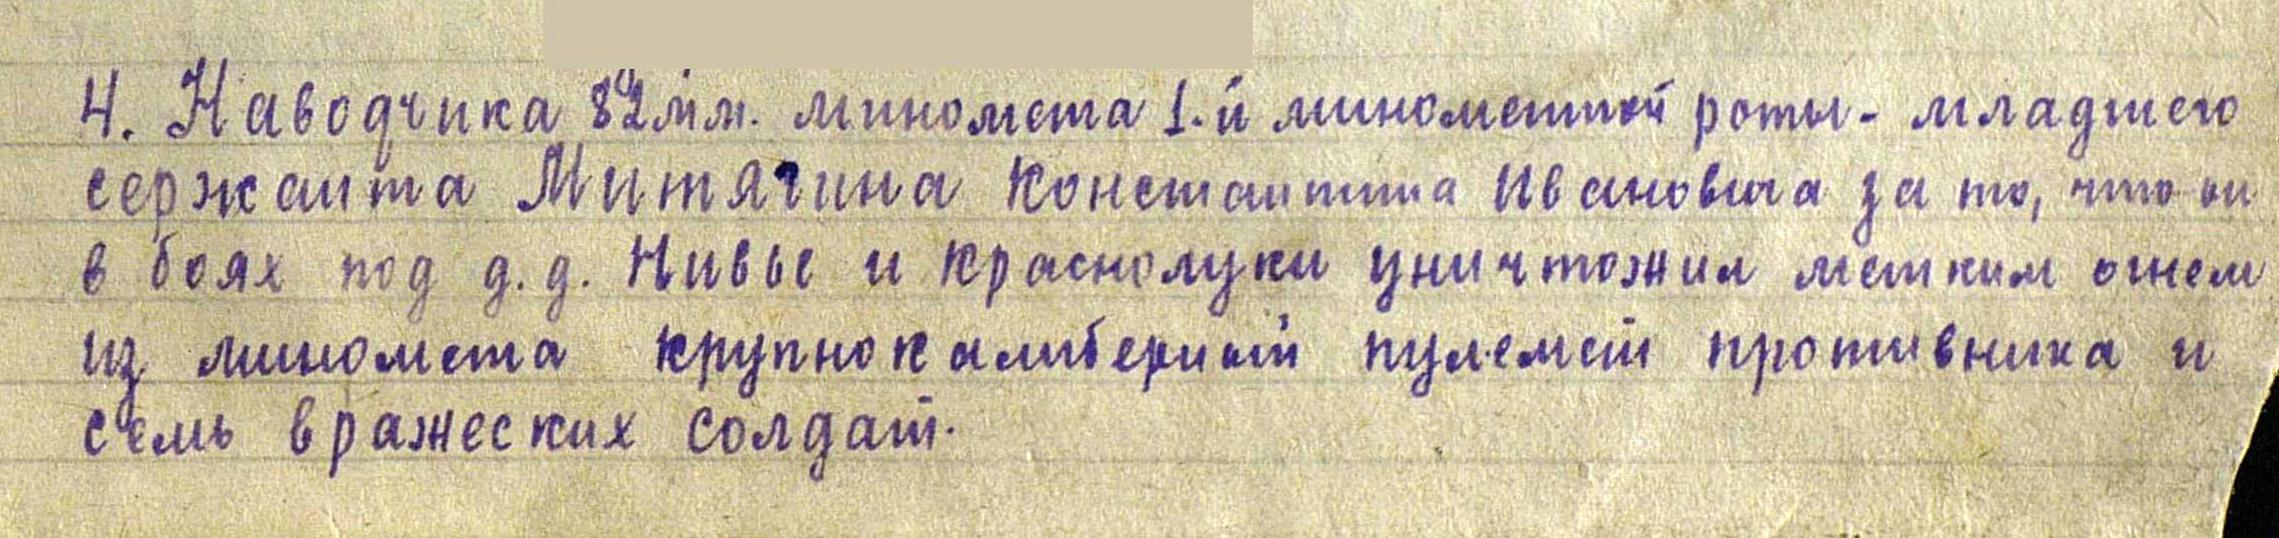 4. Наводчика 82 мм. миномета 1-й минометной роты - младшего
сержанта Митягина Константина Ивановича за то, что он
в боях под д.д. Нивье и Краснолуки уничтожил метким огнем
из миномета крупнокалиберный пулемет противника и
семь вражеских солдат.